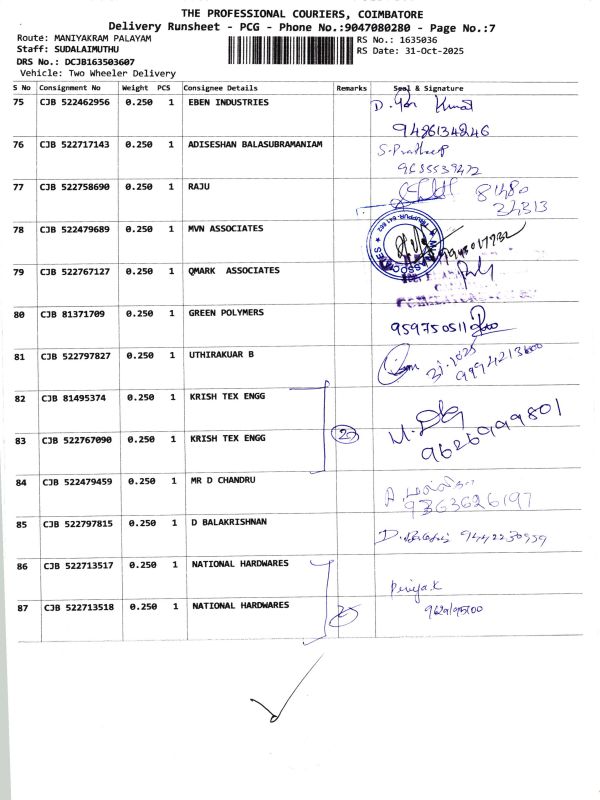 THE PROFESSIONAL COURIERS, COIMBATORE
Delivery Runsheet - PCG - Phone No.:9047080280 - Page No.:7
Route: MANIYAKRAM PALAYAM
RS No.: 1635036
Staff: SUDALAIMUTHU
RS Date: 31-Oct-2025
DRS No.: DCJB163503607
Vehicle: Two Wheeler Delivery
S No Consignment No Weight PCS Consignee Details Remarks Seal & Signature
75 CJB 522462956 0.250 1 EBEN INDUSTRIES
9426134246
76 CJB 522717143 0.250 1 ADISESHAN BALASUBRAMANIAM
S. Pratheep
9635539472
77 CJB 522758690 0.250 1 RAJU
81480
24313
78 CJB 522479689 0.250 1 MVN ASSOCIATES
79 CJB 522767127 0.250 1 QMARK ASSOCIATES
80 CJB 81371709 0.250 1 GREEN POLYMERS
81 CJB 522797827 0.250 1 UTHIRAKUAR B
9994213600
82 CJB 81495374 0.250 1 KRISH TEX ENGG
83 CJB 522767090 0.250 1 KRISH TEX ENGG
9626999801
84 CJB 522479459 0.250 1 MR D CHANDRU
9363626197
85 CJB 522797815 0.250 1 D BALAKRISHNAN
9442230959
86 CJB 522713517 0.250 1 NATIONAL HARDWARES
Priya.k
87 CJB 522713518 0.250 1 NATIONAL HARDWARES